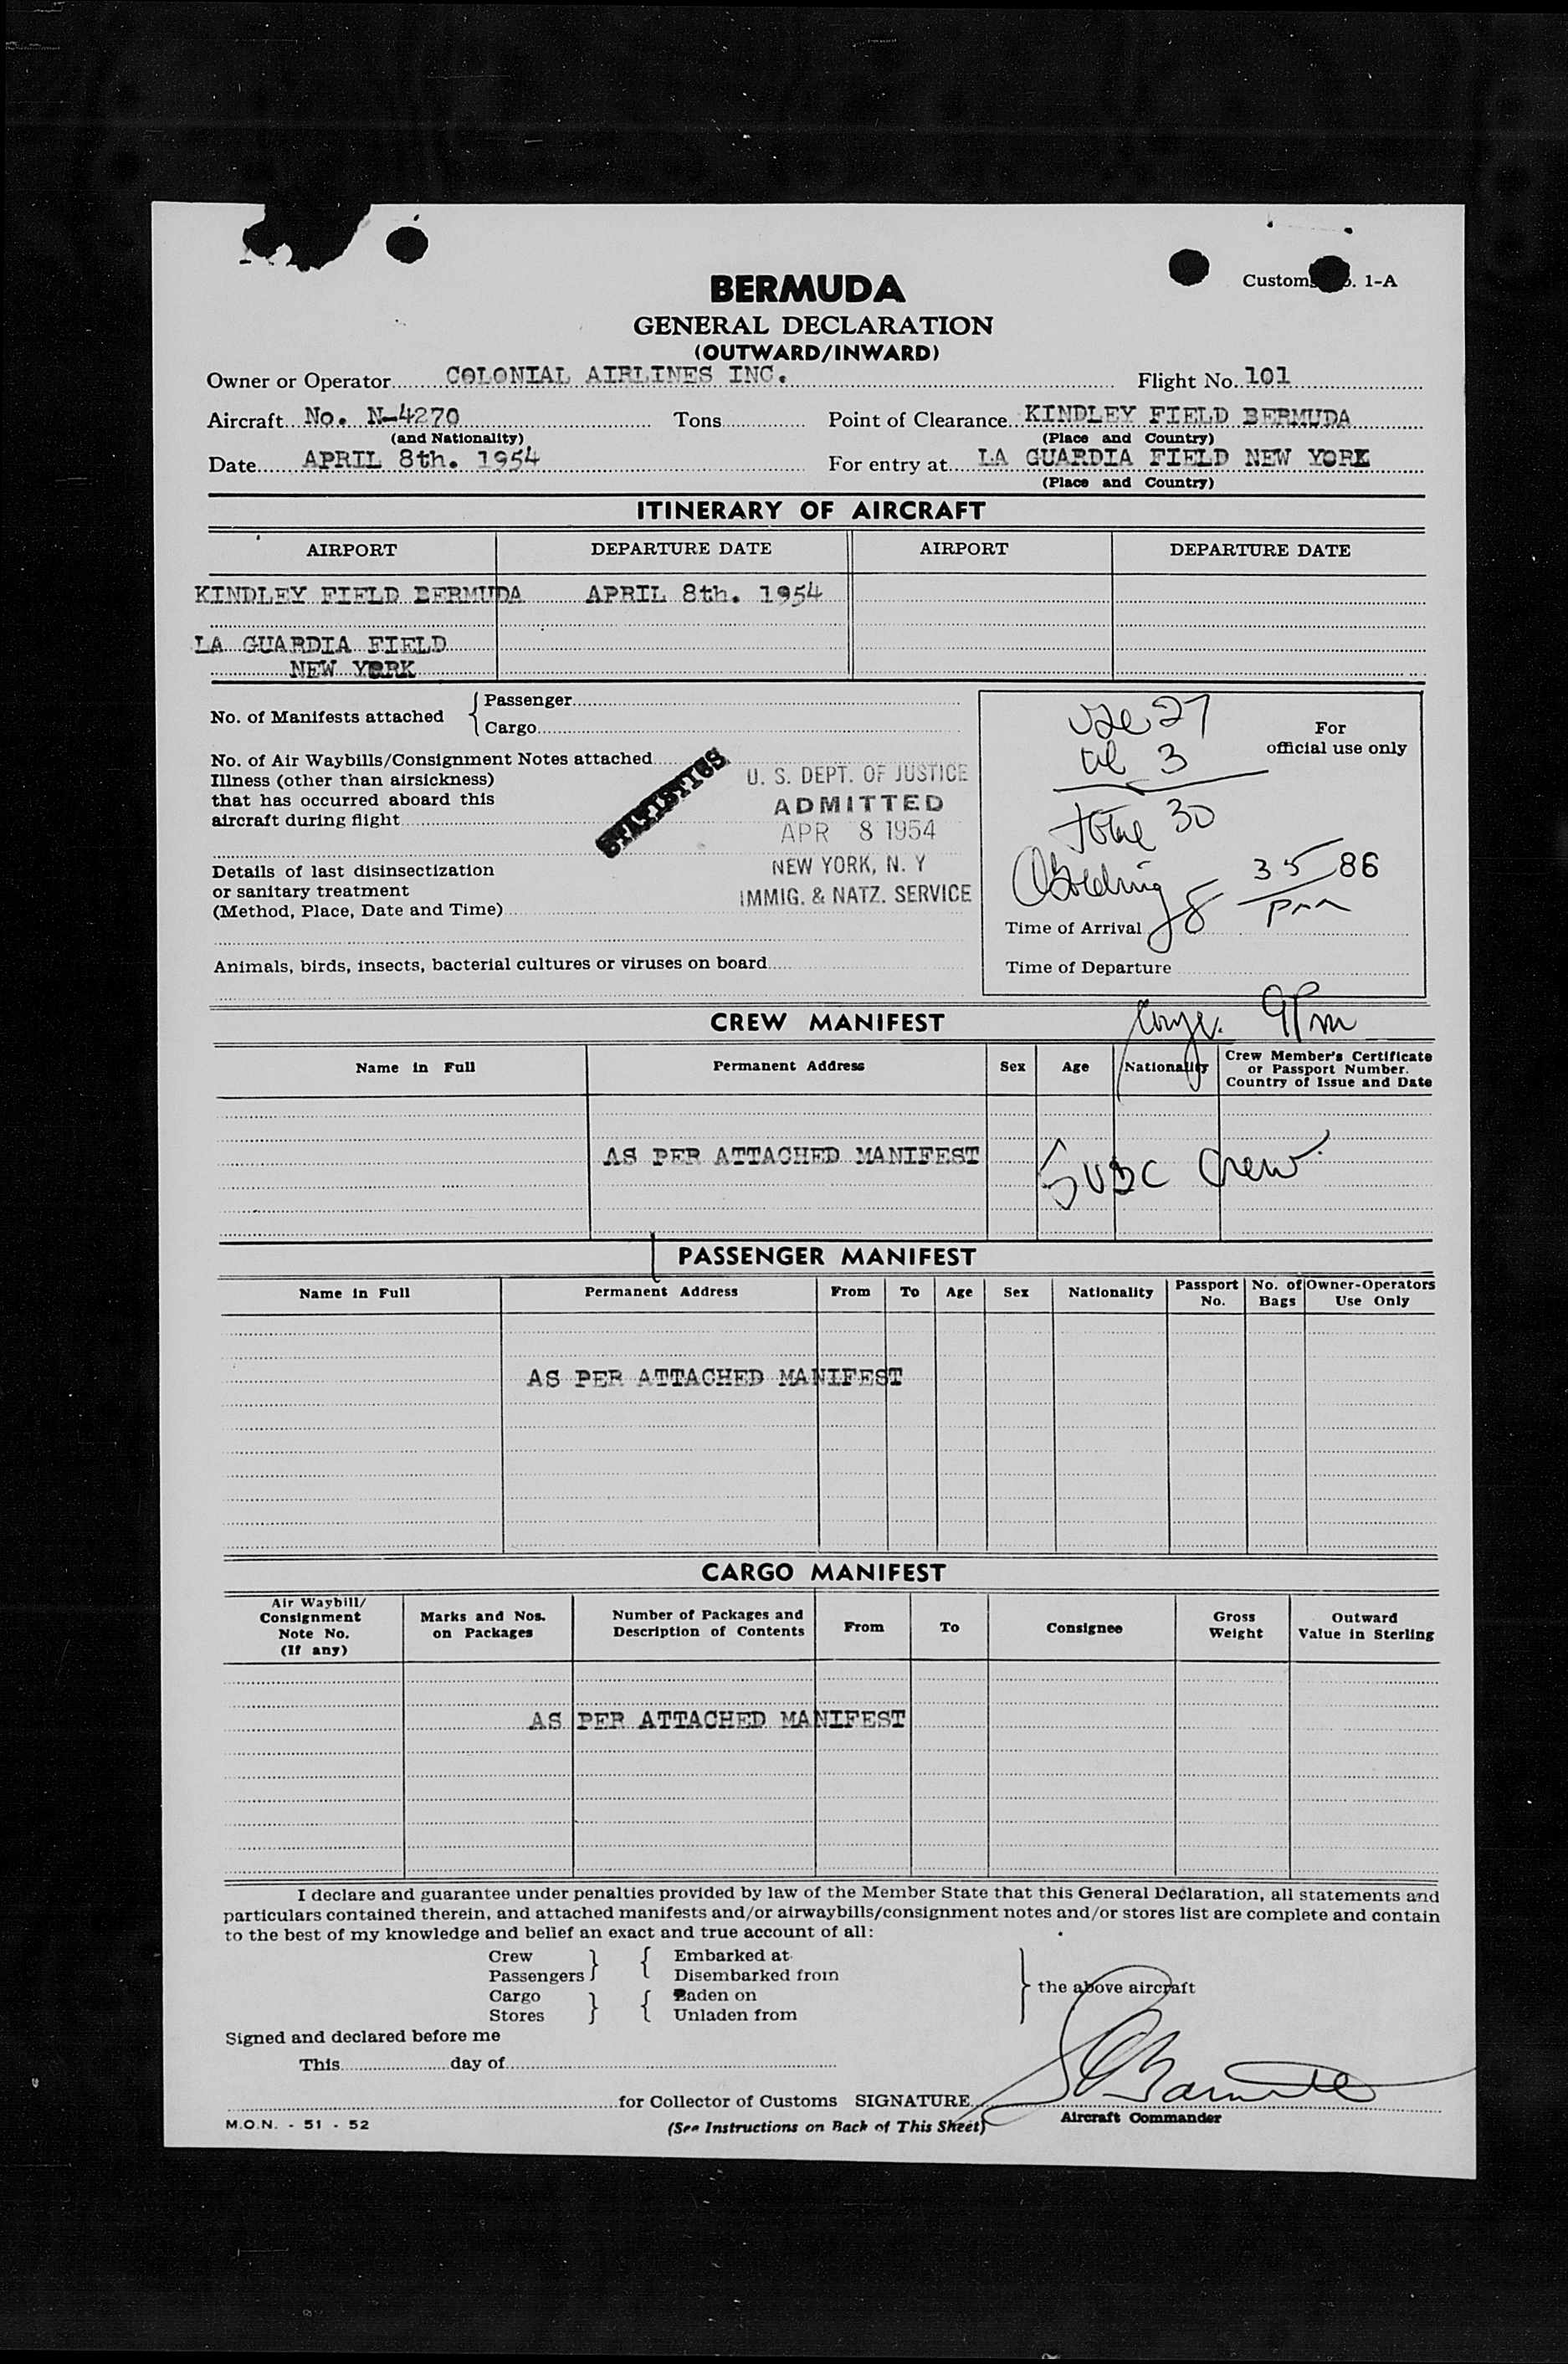 Customs No. 1-A
BERMUDA
GENERAL DECLARATION
(OUTWARD/INWARD)
Owner or Operator COLONIAL AIRLINES INC. Flight No. 101
Aircraft No. N-4270 Tons Point of Clearance KINDLEY FIELD BERMUDA
(and Nationality) (Place and Country)
Date APRIL 8th. 1954 For entry at LA GUARDIA FIELD NEW YORK
(Place and Country)
ITINERARY OF AIRCRAFT
AIRPORT DEPARTURE DATE AIRPORT DEPARTURE DATE
KINDLEY FIELD BERMUDA APRIL 8th. 1954
LA GUARDIA FIELD
NEW YORK
No. of Manifests attached { Passenger
Cargo
No. of Air Waybills/Consignment Notes attached
Illness (other than airsickness)
that has occurred aboard this
aircraft during flight
STATISTICS
U. S. DEPT. OF JUSTICE
ADMITTED
APR 8 1954
NEW YORK, N. Y
IMMIG. & NATZ. SERVICE
Details of last disinsectization
or sanitary treatment
(Method, Place, Date and Time)
Animals, birds, insects, bacterial cultures or viruses on board
For
official use only
27
3
30
8 35 86
pm
Time of Arrival
Time of Departure
9 Pm
CREW MANIFEST
Name in Full Permanent Address Sex Age Nationality Crew Member's Certificate
or Passport Number.
Country of Issue and Date
AS PER ATTACHED MANIFEST
Crew
PASSENGER MANIFEST
Name in Full Permanent Address From To Age Sex Nationality Passport No. No. of Bags Owner-Operators Use Only
AS PER ATTACHED MANIFEST
CARGO MANIFEST
Air Waybill/
Consignment
Note No.
(If any)
Marks and Nos.
on Packages
Number of Packages and
Description of Contents
From To Consignee
Gross
Weight
Outward
Value in Sterling
AS PER ATTACHED MANIFEST
I declare and guarantee under penalties provided by law of the Member State that this General Declaration, all statements and
particulars contained therein, and attached manifests and/or airwaybills/consignment notes and/or stores list are complete and contain
to the best of my knowledge and belief an exact and true account of all:
Crew } { Embarked at
Passengers Disembarked from
Cargo } { Laden on
Stores Unladen from
} the above aircraft
Signed and declared before me
This day of
for Collector of Customs SIGNATURE
Aircraft Commander
M.O.N. - 51 - 52 (See Instructions on Back of This Sheet)